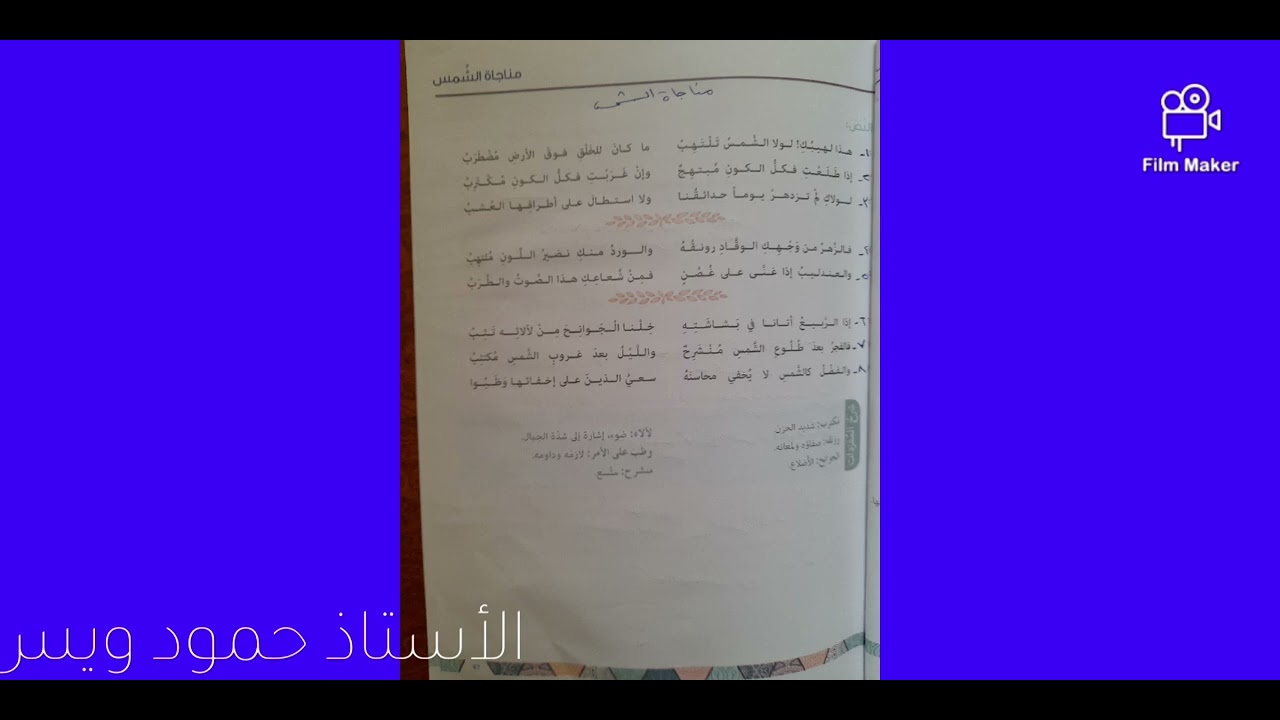 مناجاة الشَّمس
مناجاة الشمس
النص:
١- هذا لهيبُكِ! لولا الشَّمسُ تَلْتَهِبُ ما كانَ للخَلْقِ فوقَ الأرضِ مُضْطَرَبُ
٢- إذا طَلَعْتِ فكلُّ الكونِ مُبتهجٌ وإنْ غَرَبْتِ فكلُّ الكونِ مُكْتَرِبُ
٣- لولاكِ لمْ تزدهرْ يوماً حدائقُنا ولا استطالَ على أطرافِها العُشْبُ
٤- فالزَّهرُ من وَجْهِكِ الوقَّادِ رونقُهُ والوردُ منكِ نضيرُ اللَّونِ مُلتهِبُ
٥- والعندليبُ إذا غنَّى على غُصُنٍ فمِنْ شُعاعِكِ هذا الصَّوتُ والطَّرَبُ
٦- إذا الرَّبيعُ أتانا في بَشاشَتِهِ خِلْنا الجَوانِحَ مِنْ لألائِه تَثِبُ
٧- فالفجرُ بعدَ طُلُوعِ الشَّمسِ مُنْشَرِحٌ واللَّيْلُ بعدَ غروبِ الشَّمسِ مُكتئِبُ
٨- والفضْلُ كالشَّمسِ لا يُخفي محاسنَهُ سعيُ الذينَ على إخفائها وَظَبُوا
شرح المفردات
مكترب: شديد الحزن.
رونقه: صفاؤه ولمعانه.
الجوانح: الأضلاع.
لألاؤه: ضوء، إشارة إلى شدّة الجمال.
وظب على الأمر: لازمه وداومه.
منشرح: متّسع.
Film Maker
الأستاذ حمود ويس